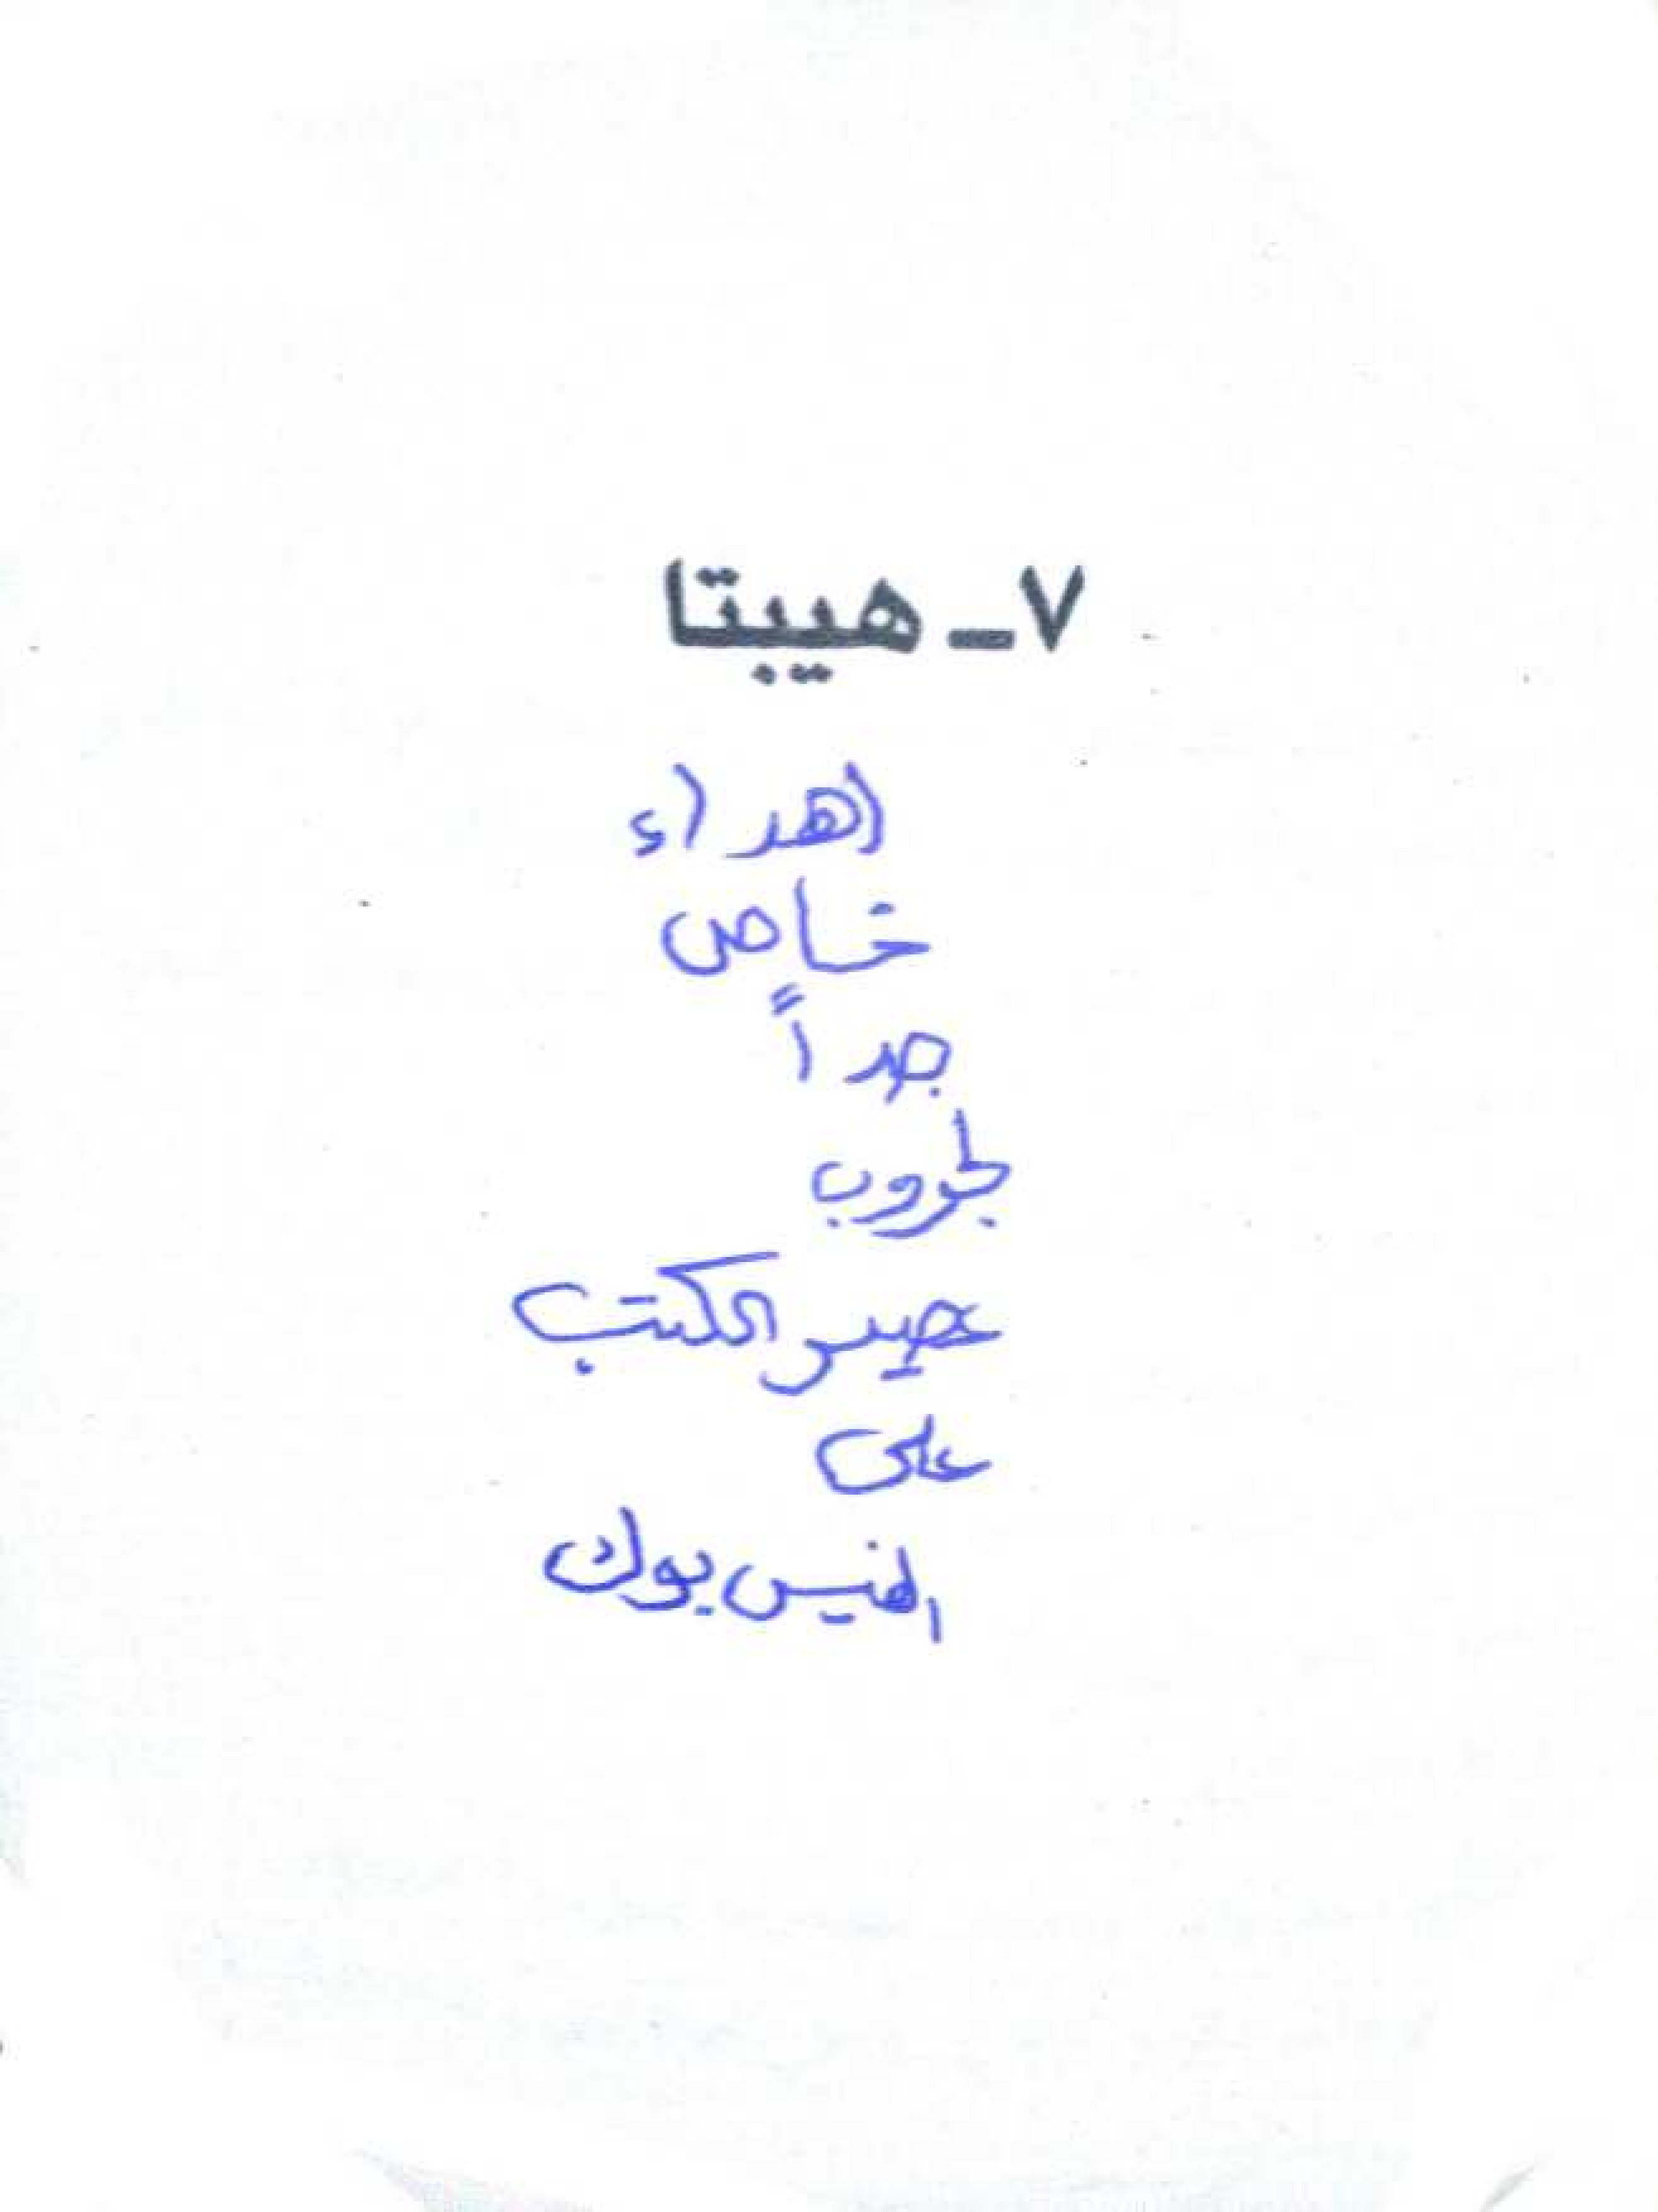 ٧ - هيبتا
اهداء
خاص
جداً
لجروب
عصير الكتب
على
الفيس بوك